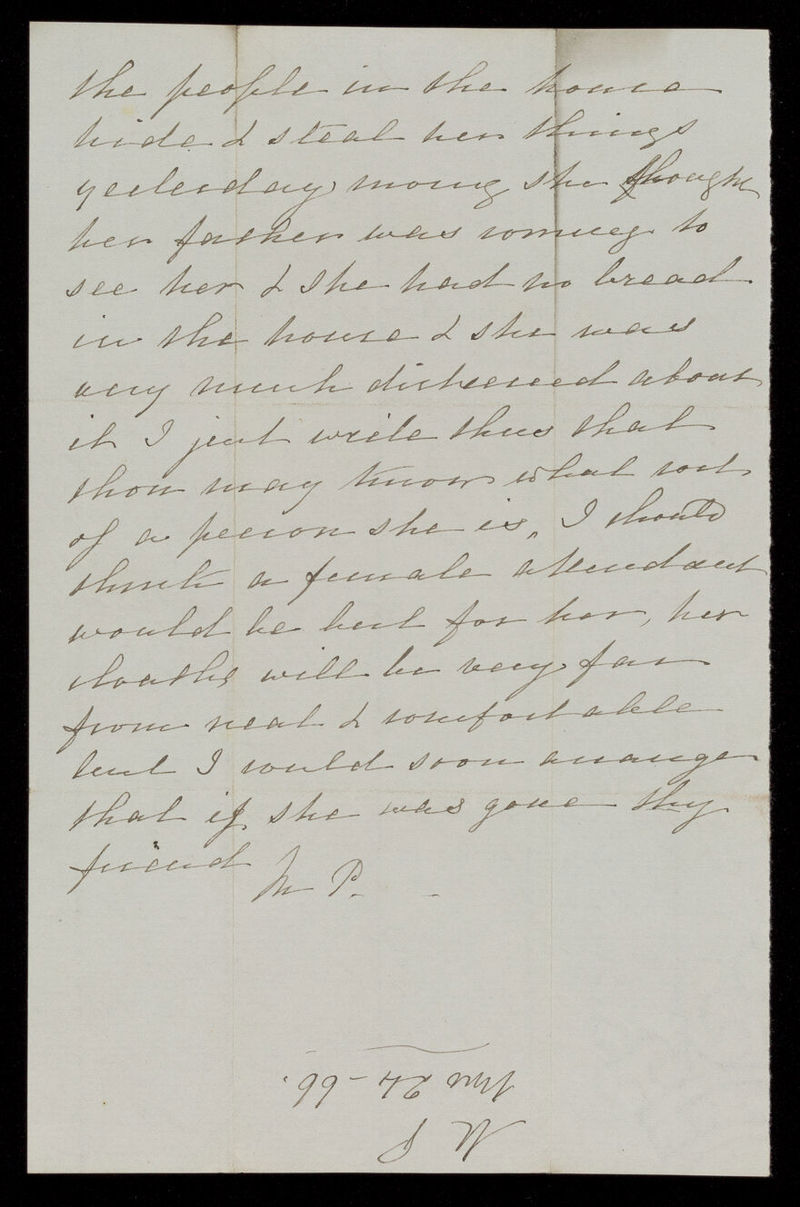 the people in the house
hide & steal her things
yesterday morng she thought
her father was coming to
see her & she had no bread
in the house & she was
very much distressed about
it I just write thus that
thou may know what sort
of a person she is, I should
think a female attendant
would be best for her, her
cloaths will be very far
from neat & comfortable
but I could soon arrange
that if she was gone thy
friend
M P.
24 - 66.